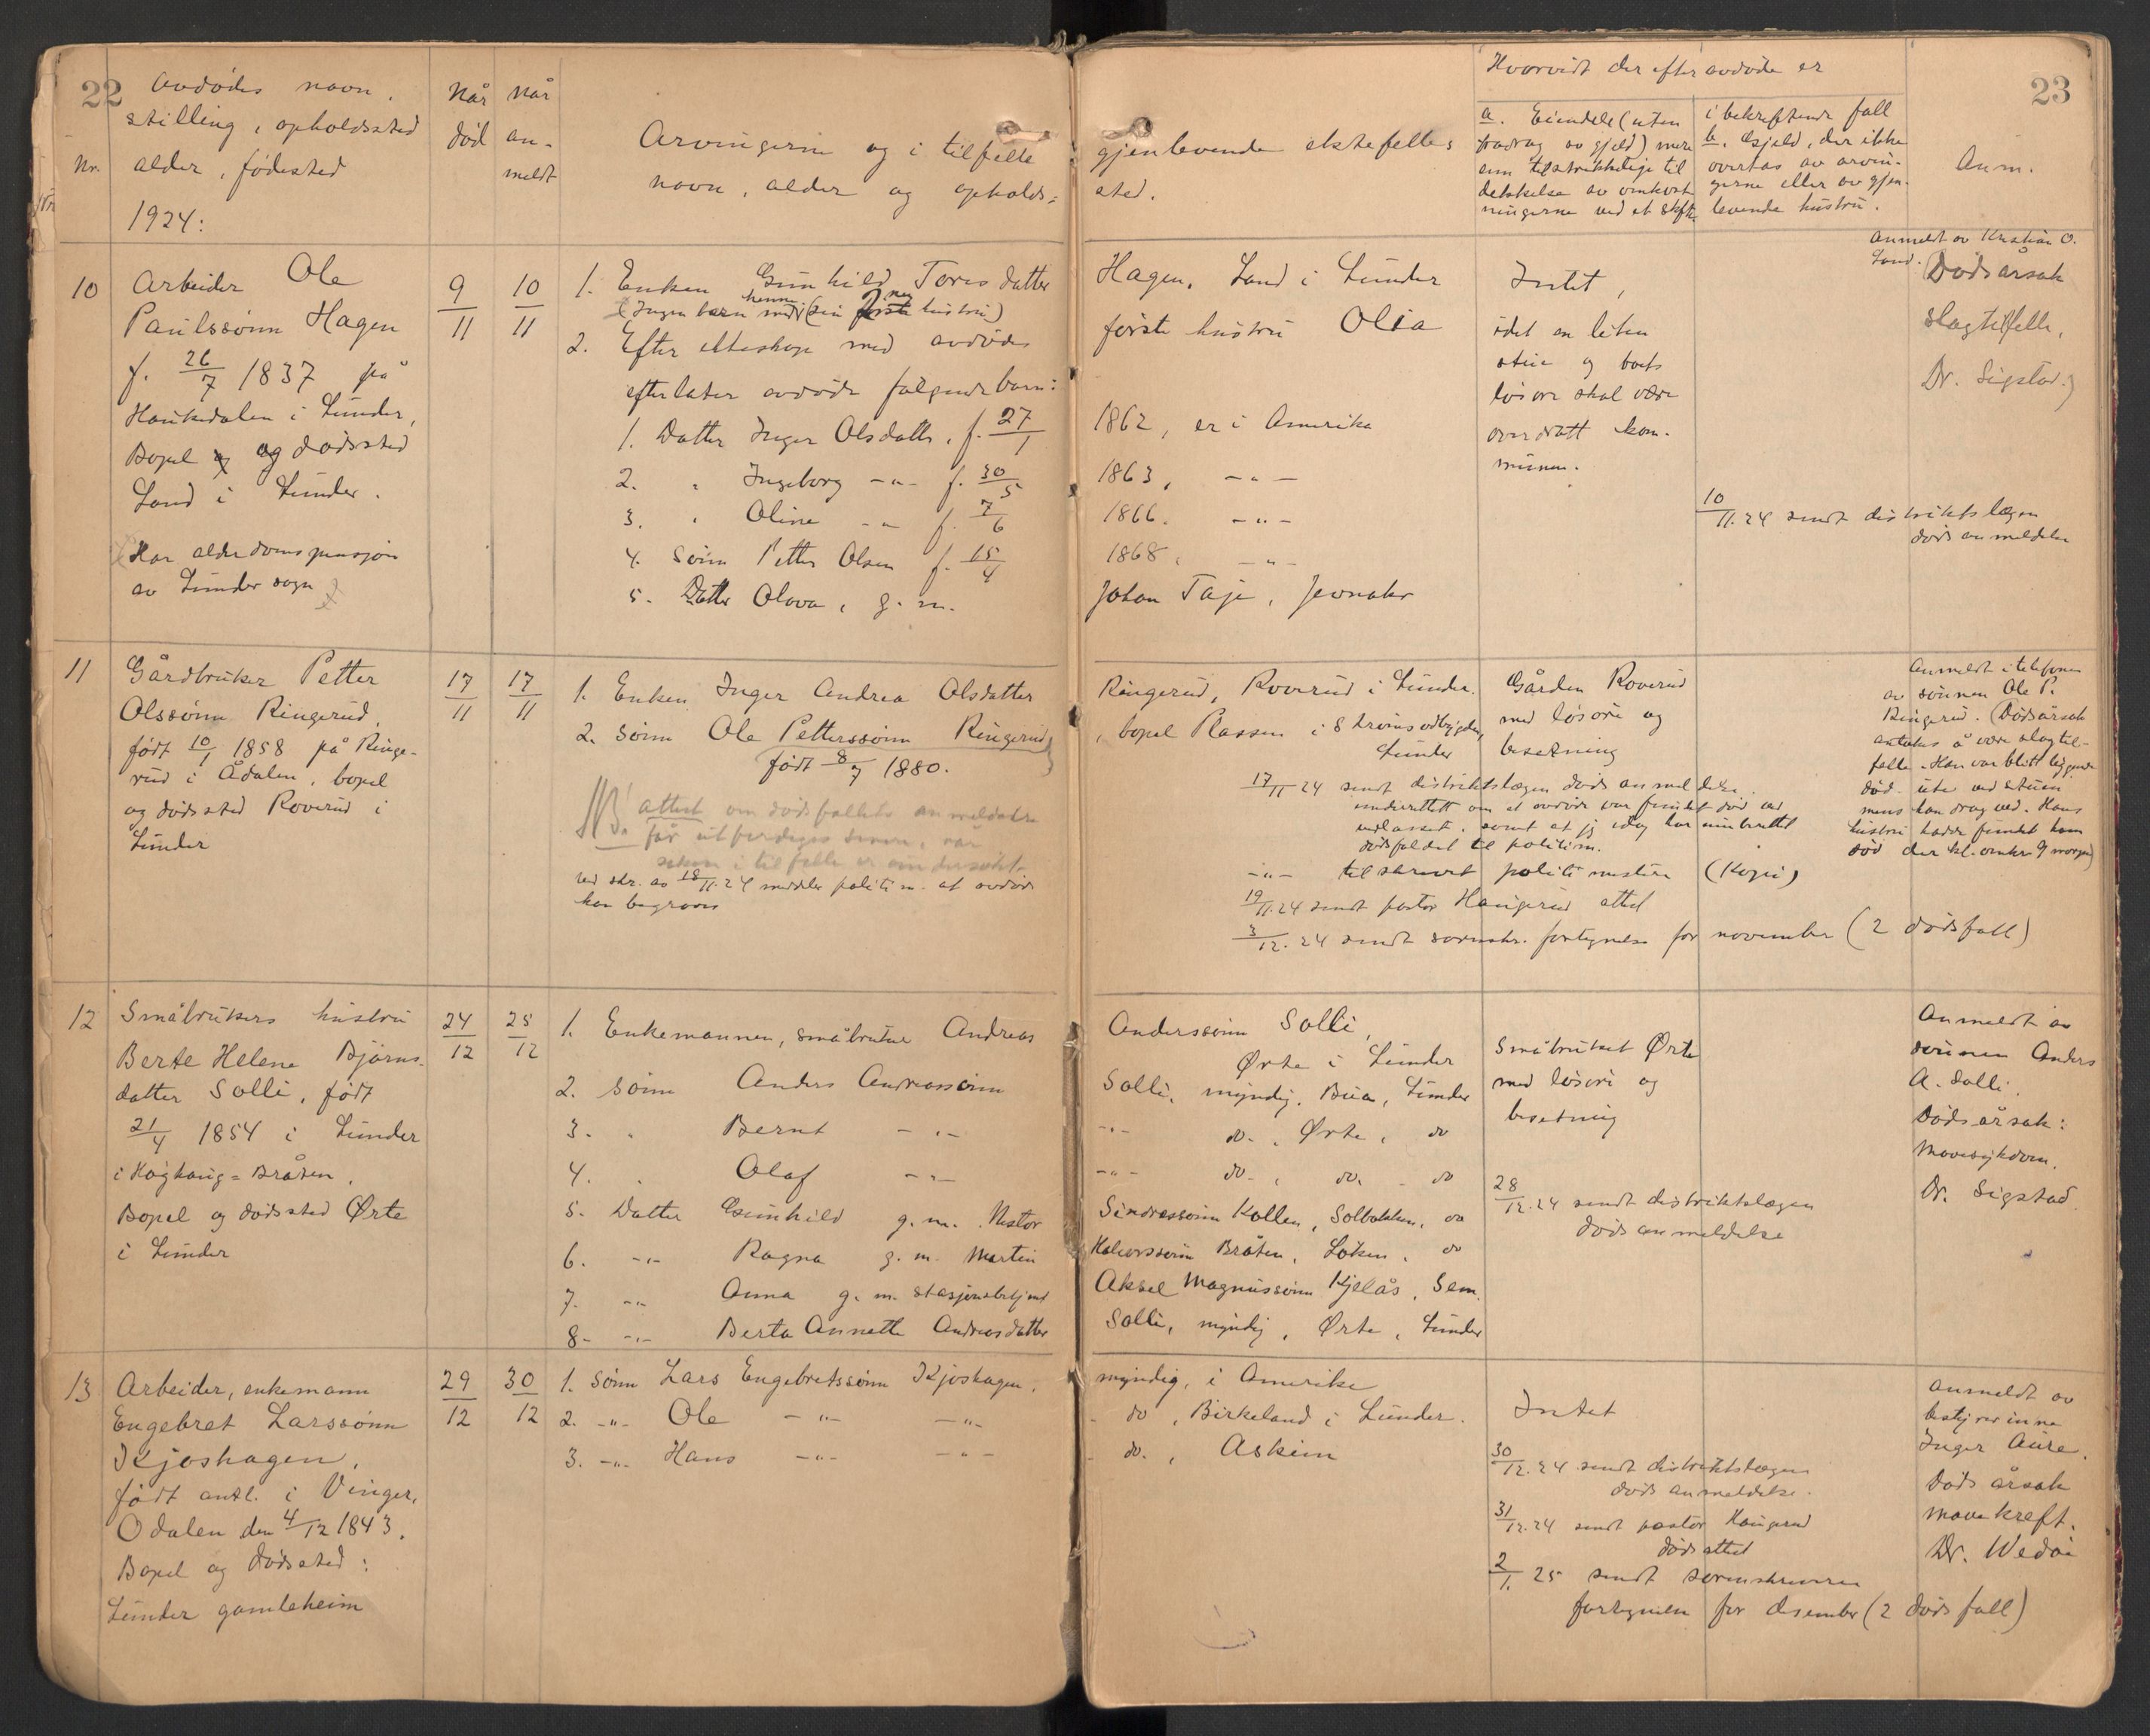 22
Nr.
Avdødes navn,
stilling, opholdssted
alder, fødested
1924:
Når
død
Når
an-
meldt
Arvingerne og i tilfelle
navn, alder og opholds=
gjenlevende ektefelles
sted.
Hvorvidt der efter avdøde er
a. Eiendele (uten
fradrag av gjeld) mere
enn tilstrekkelige til
dekkelse av omkost
ningerne ved et skifte
i bekreftende fall
b. Gjeld, der ikke
overtas av arvin-
gerne eller av gjen-
levende hustru.
23
Anm.
10
Arbeider Ole
Paulssønn Hagen
f. 26/7 1837 på
Haukedalen i Lunder,
Bopel og dødssted
Sand i Lunder.
Har alderdomspensjon
av Lunder sogn
9/11
10/11
1. Enken Gunhild Toresdatter
(Ingen barn med henne (sin 2nen hustru)
2. Efter ekteskap med avdødes
efterlater avdøde følgende barn:
1. Datter Inger Olsdatter, f. 27/1
2. " Ingeborg -"- f. 30/5
3. " Oline -"- f. 7/6
4. Sønn Petter Olsen f. 15/4
5. Datter Olava, g. m.
Hagen, Sand i Lunder
første hustru Olia
1862, er i Amerika
1863, -"-
1866. -"-
1868, -"-
Johan Taje, Jevnaker
Intet,
idet en liten
stue og borts
løsøre skal være
overdratt kom-
munen.
10/11.24 sendt distriktslægen
dødsanmeldelse
Anmeldt av Kristian O.
Sand. (Dødsårsak
slagtilfelle,
Dr. Sigstad.)
11
Gårdbruker Petter
Olssønn Ringerud,
født 10/1 1858 på Ringe-
rud i Ådalen, bopel
og dødssted Roverud i
Lunder
17/11
17/11
1. Enken Inger Andrea Olsdatter
2. Sønn Ole Petterssønn Ringerud
født 8/7 1880.
NB! attest om dødsfallets anmeldelse
får utferdiges senere, når
saken i tilfelle er undersøkt.
Ved skr. av 18/11.24 meddeler politim. at avdøde
kan begraves
Ringerud, Roverud i Lunder.
, bopel Plassen i Strømsoddbygden,
Lunder
Gården Roverud
med løsøre og
besetning
17/11 24 sendt distriktslægen dødsanmeldelse.
underrettet om at avdøde var fundet død ved
vedlasset, samt at jeg idag har innberettet
dødsfaldet til politim.
-"- tilskrevet politimesteren (Kopi)
19/11.24 sendt pastor Haugerud attest
3/12.24 sendt sorenskr. fortegnelse for november (2 dødsfall)
Anmeldt i telefonen
av sønnen Ole P.
Ringerud. (Dødsårsak
antakes å være slagtil-
felle. Han var blitt liggende
død ute ved stuen
mens han drog ved. Hans
hustru hadde fundet ham
død der kl. omkr. 9 morgen)
12
Småbrukers hustru
Berte Helene Bjørns-
datter Solli, født
21/4 1854 i Lunder
i Haghaug=Bråten,
Bopel og dødssted Ørte
i Lunder
24/12
25/12
1. Enkemannen, småbruker Andreas
2. Sønn Anders Andreassønn
3. " Bernt -"-
4. " Olaf -"-
5. Datter Gunhild g. m. Nestor
6. -"- Ragna g. m. Martin
7. -"- Anna g. m. stasjonsbetjent
8. -"- Berta Annette Andreasdatter
Anderssønn Solli,
Ørte i Lunder
Solli, myndig, Bua, Lunder
-"- do., Ørte, do
-"- do., do. do
Sindressønn Kollen, Solbakken, do
Halvorssønn Bråten, Løken, do
Aksel Magnussønn Kjelås, Sem.
Solli, myndig, Ørte, Lunder
Småbruket Ørte
med løsøre og
besetning
28/12.24 sendt distriktslægen
dødsanmeldelse
Anmeldt av
sønnen Anders
A. Solli.
Dødsårsak:
Mavesykdom.
Dr. Sigstad
13
Arbeider, enkemann
Engebret Larssønn
Kjoshagen,
født antl. i Vinger,
Odalen den 4/12 1843.
Bopel og dødssted:
Lunder gamleheim
29/12
30/12
1. Sønn Lars Engebretssønn Kjoshagen,
2. -"- Ole -"- -"-
3. -"- Hans -"- -"-
myndig, i Amerika
do, Birkeland i Lunder.
do., Askim
Intet
30/12.24 sendt distriktslægen
dødsanmeldelse.
31/12.24 sendt pastor Haugerud
dødsattest
2/1. 25 sendt sorenskriveren
fortegnelse for desember (2 dødsfall)
Anmeldt av
bestyrerinne
Inger Aure.
Dødsårsak
mavekreft.
Dr. Wedøe